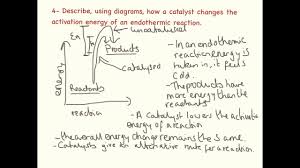 4- Describe, using diagrams, how a catalyst changes the
activation energy of an endothermic reaction.
Ea
uncatalysed
Products
catalysed
Reactants
energy
reaction
- In an endothermic
reaction energy is
taken in, it feels
cold.
- The products have
more energy than the
reactants
- A catalyst lowers the activation
energy of a reaction
- the overall energy change remains the same.
- Catalysts give an alternative route for a reaction.